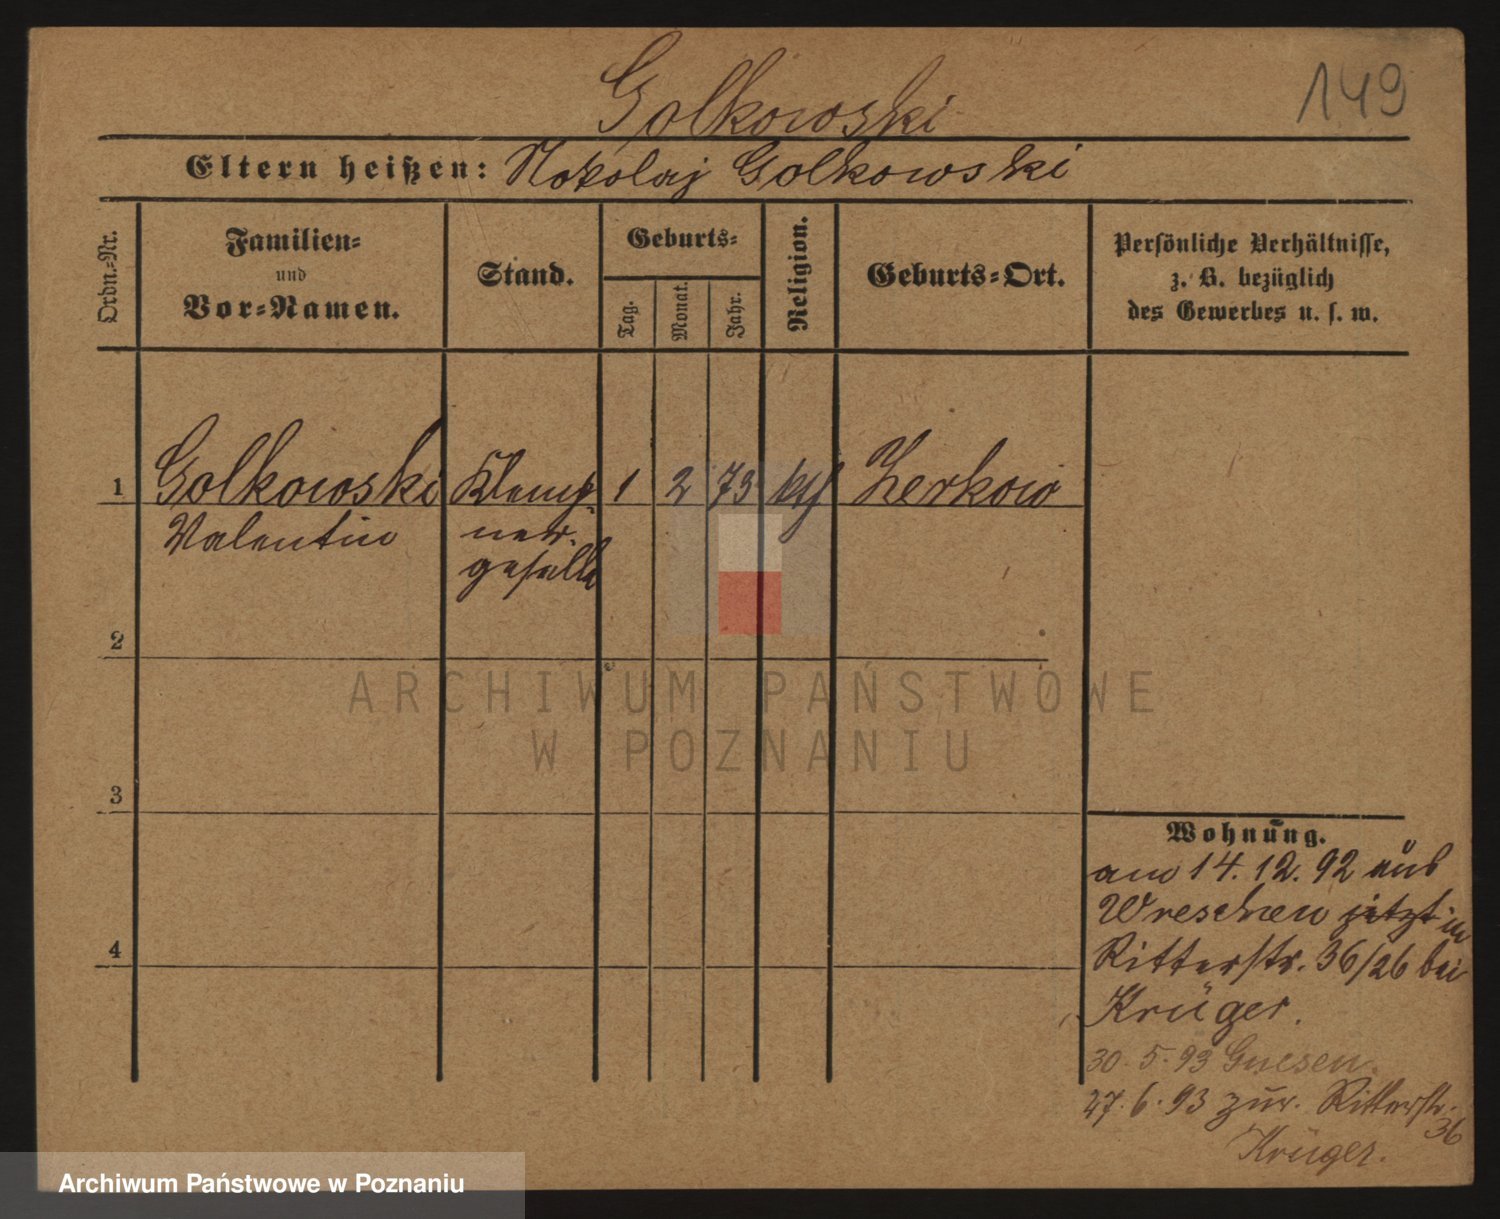 149
Golkowski
Eltern heißen: Nokolaj Golkowski
Ordn.-Nr.
Familien-
und
Vor-Namen.
Stand.
Geburts-
Tag.
Monat.
Jahr.
Religion.
Geburts-Ort.
Persönliche Verhältnisse,
z. B. bezüglich
des Gewerbes u. s. w.
1 Golkowski Klemp- 1 2 73 kth Zerkow
Valentin ner-
geselle
2
3
4
Wohnung.
am 14. 12. 92 aus
Wreschen jetzt in
Ritterstr. 36/26 bei
Krüger.
30. 5. 93 Gnesen.
27. 6. 93 zur. Ritterstr.
36
Krüger.
ARCHIWUM PAŃSTWOWE
W POZNANIU
Archiwum Państwowe w Poznaniu